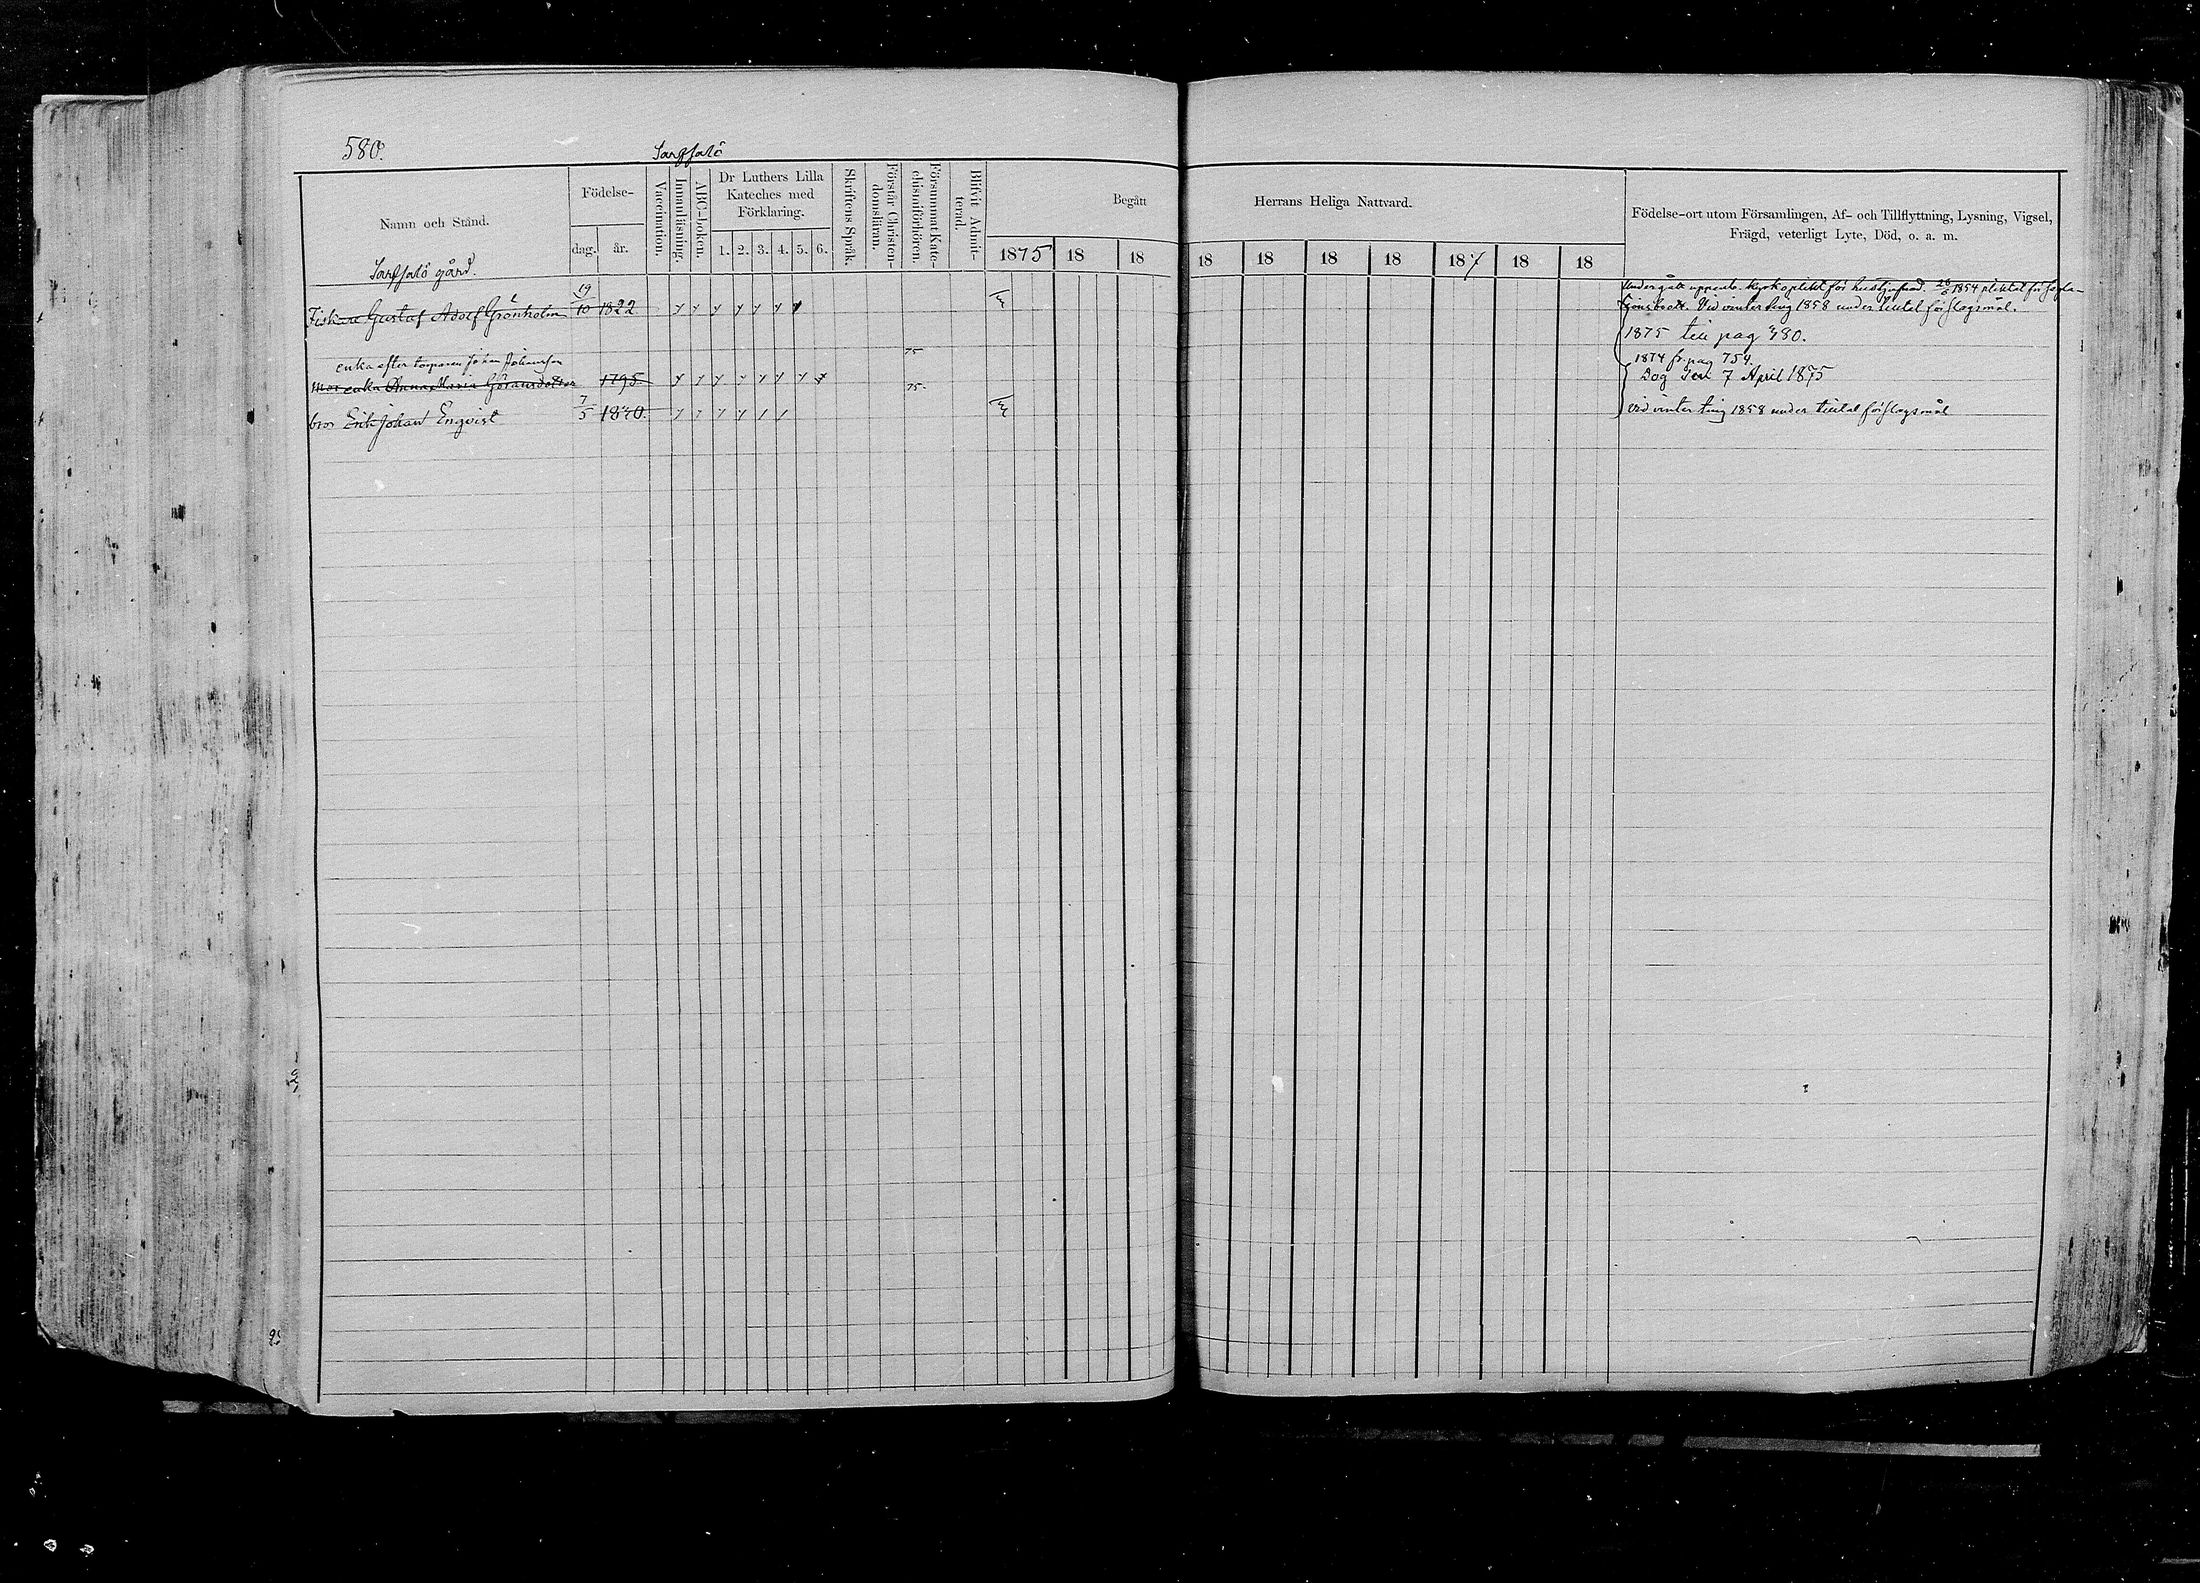 580.
Sarfsalö
Namn och Stånd.
Födelse-
dag.
år.
Vaccination.
Innanläsning.
ABC-boken.
Dr Luthers Lilla
Kateches med
Förklaring.
1. 2. 3. 4. 5. 6.
Skriftens Språk.
Förstår Christen-
domsläran.
Försummat Kate-
chismiförhören.
Blifvit Admit-
terad.
Begått
Herrans Heliga Nattvard.
1875 18 18 18 18 18 18 187 18 18
Födelse-ort utom Församlingen, Af- och Tillflyttning, Lysning, Vigsel,
Frägd, veterligt Lyte, Död, o. a. m.
Sarfsalö gård.
Fiskare Gustaf Adolf Grönholm 19/10 1822
Undergått uppenb. kyrkoplikt för 1854 pliktat för
Vid vinter ting 1858 under tiltal för slagsmål.
1875 till pag 480.
enka efter torparen Johan Johansson
mor enka Anna Maria Göransdotter 1795. 75 75
1874 fr. pag 754
Dog den 7 April 1875
bror Erik Johan Enqvist 7/5 1840.
vid vinter ting 1858 under tiltal för slagsmål